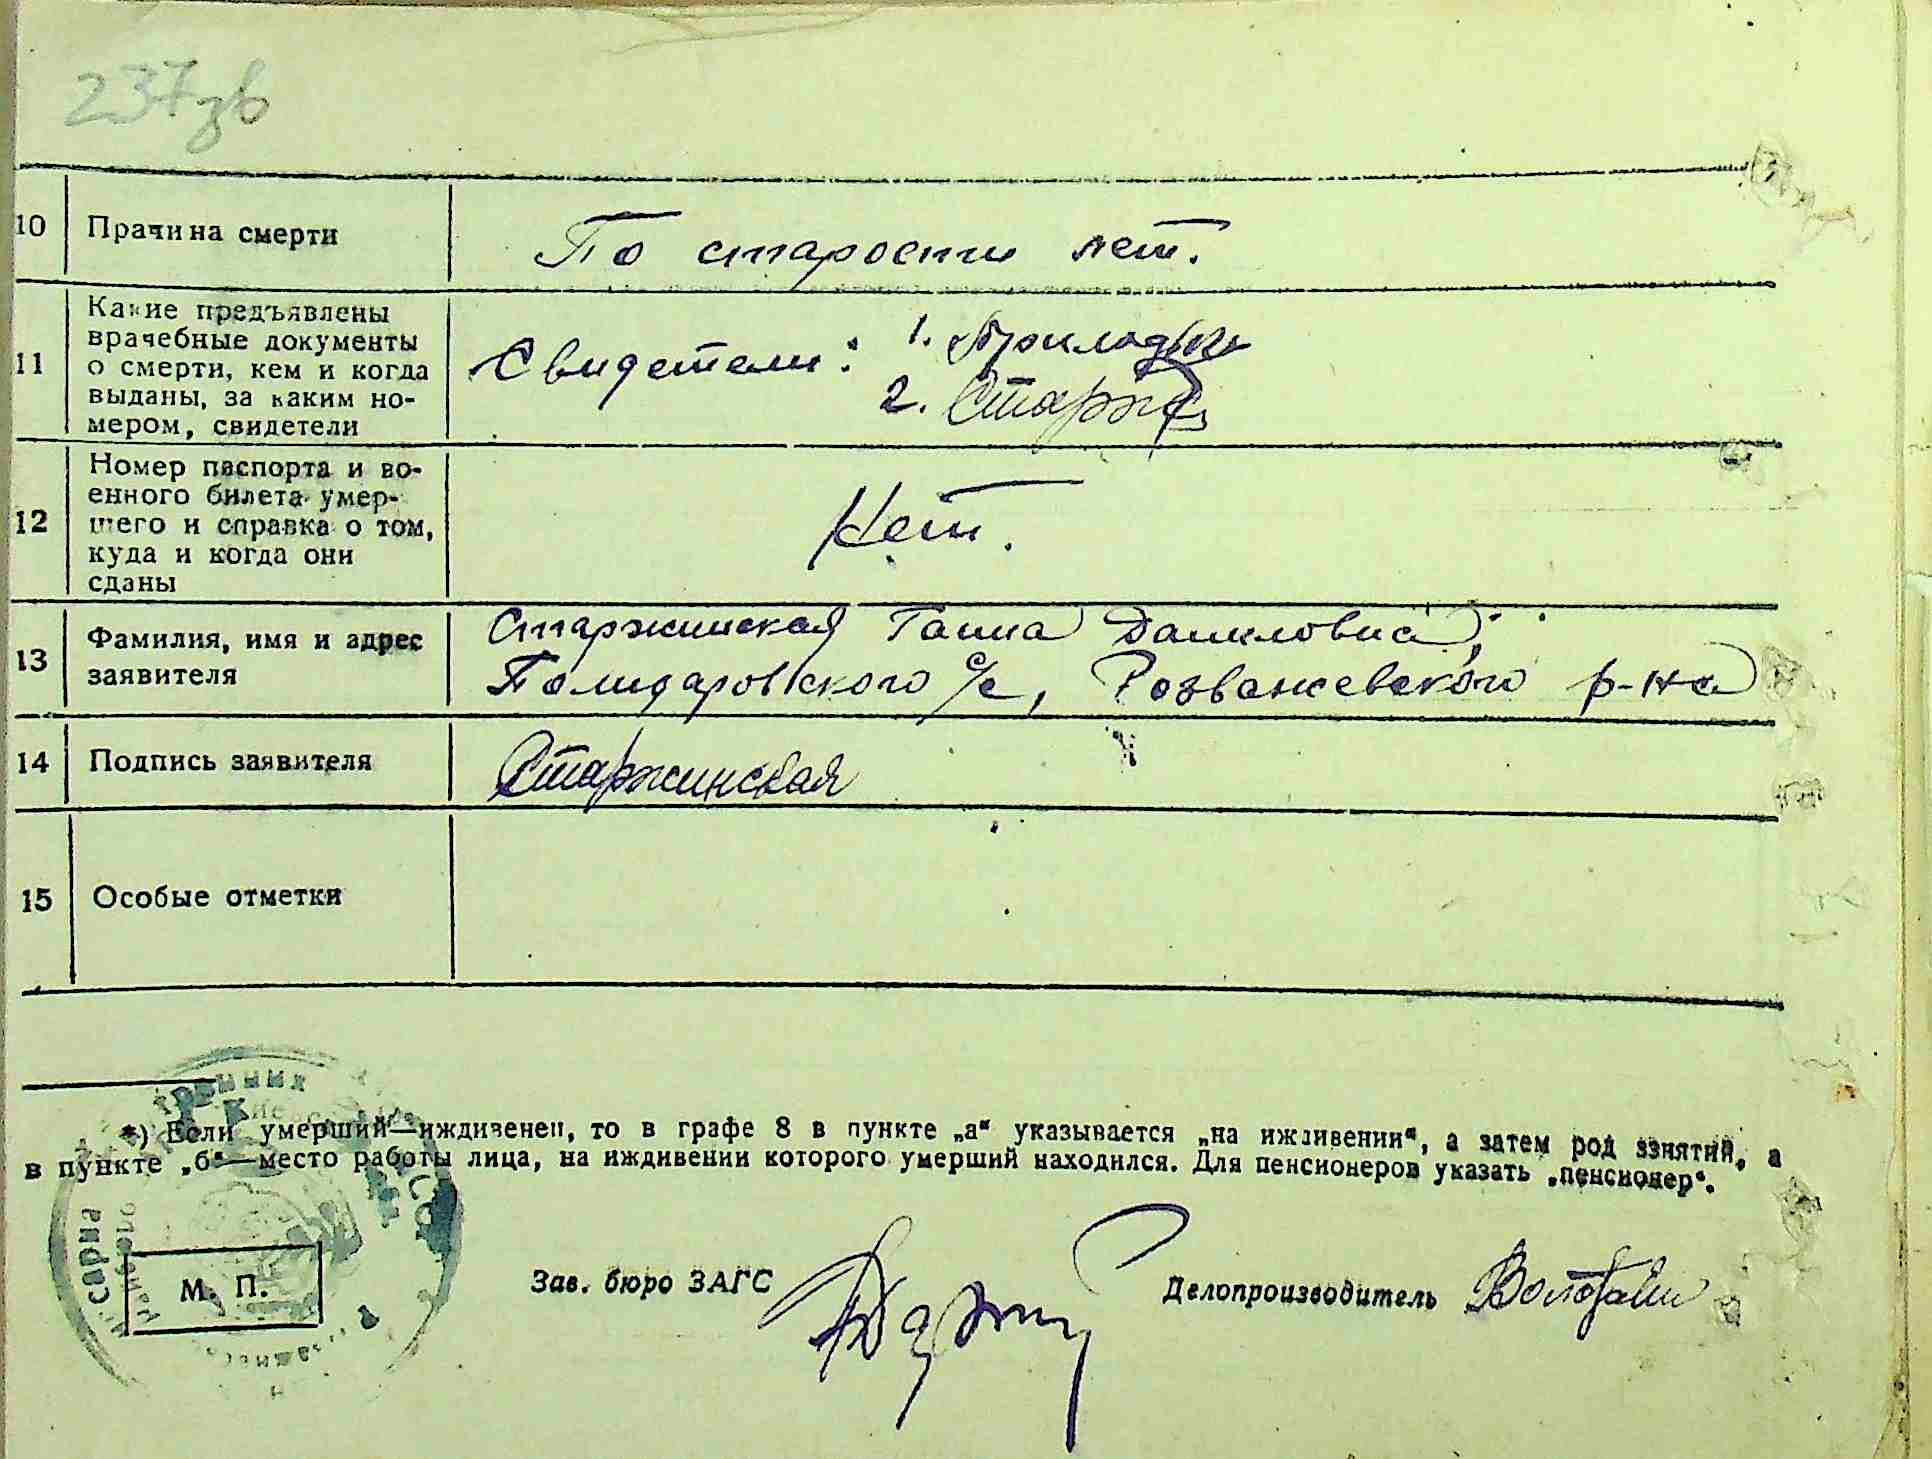 237зв
10 Причина смерти По старости лет.
11 Какие предъявлены
врачебные документы
о смерти, кем и когда
выданы, за каким но-
мером, свидетели
Свидетели: 1.
2.
12 Номер паспорта и во-
енного билета умер-
шего и справка о том,
куда и когда они
сданы
Нет.
13 Фамилия, имя и адрес
заявителя
Старжинская Ганна Даниловна,
Полидаровского с/с, Розважевского р-на
14 Подпись заявителя Старжинская
15 Особые отметки
*) Если умерший—иждивенец, то в графе 8 в пункте „а“ указывается „на иждивении“, а затем род занятий, а
в пункте „б“—место работы лица, на иждивении которого умерший находился. Для пенсионеров указать „пенсионер“.
М. П.
Зав. бюро ЗАГС Делопроизводитель